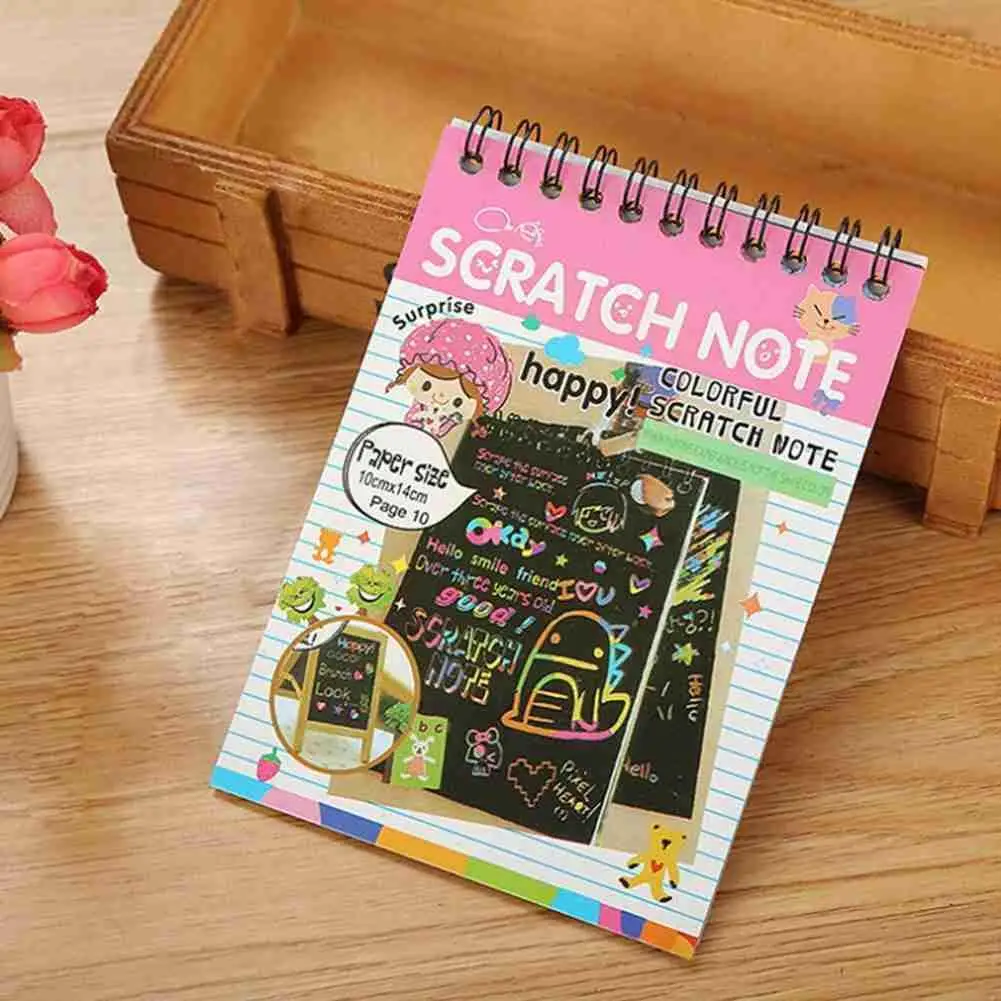 SCRATCH NOTE
Surprise
happy!
COLORFUL
SCRATCH NOTE
Paper size
10cmx14cm
Page 10
Scrape the surface
Scrape the surface
Okay
Hello smile friend
I U
Over three years old
good!
SCRATCH
NOTE
g?!
Hello
Hello
Happy!
Brunch
Look
b c
Pixel
Heart!